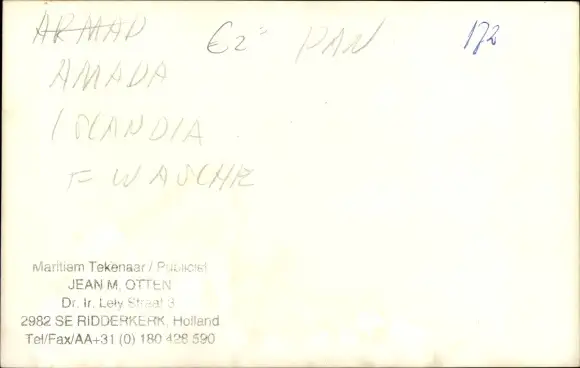 ARMAD €2= PAN 172
AMADA
ISLANDIA
F WASCHR
Maritiem Tekenaar / Publicist
JEAN M. OTTEN
Dr. Ir. Lely Straat 3
2982 SE RIDDERKERK, Holland
Tel/Fax/AA+31 (0) 180 428 590